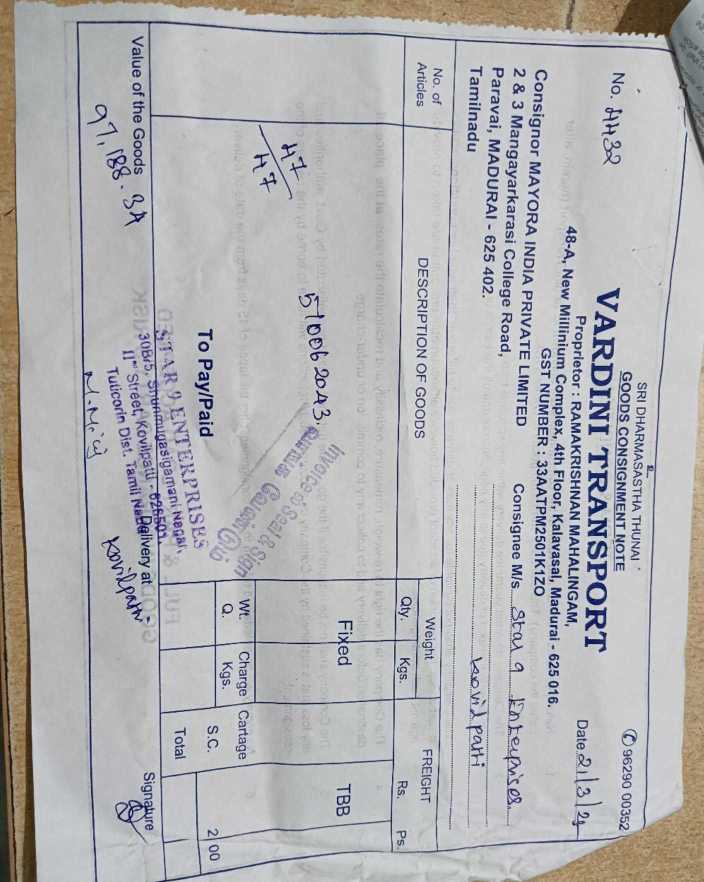 SRI DHARMASASTHA THUNAI
GOODS CONSIGNMENT NOTE
✆ 96290 00352
No. 4432
VARDINI TRANSPORT
Proprietor : RAMAKRISHNAN MAHALINGAM,
48-A, New Millinium Complex, 4th Floor, Kalavasal, Madurai - 625 016.
GST NUMBER : 33AATPM2501K1ZO
Date 21/3/24
Consignor MAYORA INDIA PRIVATE LIMITED
2 & 3 Mangayarkarasi College Road,
Paravai, MADURAI - 625 402.
Tamilnadu
Consignee M/s Star 9 Enterprises
Kovilpatti
No. of Articles
DESCRIPTION OF GOODS
Weight
Qty. Kgs.
FREIGHT
Rs. Ps.
47/47
510062043.
Fixed
TBB
Invoice-ல் Seal & Sign
Wt. Q.
Charge Kgs.
Cartage
S.C.
2 00
Total
To Pay/Paid
STAR 9 ENTERPRISES
306/5, Shunmugasigamani Nagar,
11th Street, Kovilpatti - 628501.
Tuticorin Dist. Tamil Nadu
Value of the Goods
97,188.34
Delivery at
Kovilpatti
Signature